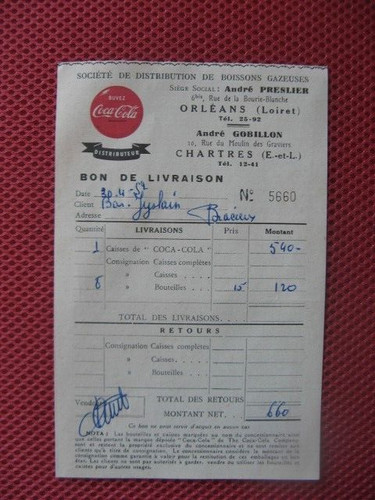 SOCIÉTÉ DE DISTRIBUTION DE BOISSONS GAZEUSES
BUVEZ
Coca-Cola
DISTRIBUTEUR
SIÈGE SOCIAL : André PRESLIER
6bis, Rue de la Bourie-Blanche
ORLÉANS (Loiret)
Tél. 25-92
André GOBILLON
10, Rue du Moulin des Graviers
CHARTRES (E.-et-L.)
Tél. 13-41
BON DE LIVRAISON
Date 30.4.52 N° 5660
Client
Adresse Bracieux
Quantité LIVRAISONS Prix Montant
1 Caisses de " COCA-COLA " 540-
Consignation Caisses complètes
» Caisses
8 » Bouteilles 15 120
TOTAL DES LIVRAISONS
RETOURS
Consignation Caisses complètes
» Caisses
» Bouteilles
TOTAL DES RETOURS
MONTANT NET 660
Ce bon ne peut servir d'acquit en aucun cas
NOTA : Les bouteilles et caisses marquées au nom du concessionnaire ainsi
que celles portant la marque déposée "Coca-Cola" de The Coca-Cola Company,
sont et restent la propriété exclusive du concessionnaire et sont remises aux
clients qu'à titre de consignation. Le concessionnaire considère le montant de la
consignation comme garantie à valoir pour la restitution de ces emballages en bon
état. Les clients ne sont pas autorisés à garder, vendre ou utiliser les bouteilles et
caisses pour d'autres usages.